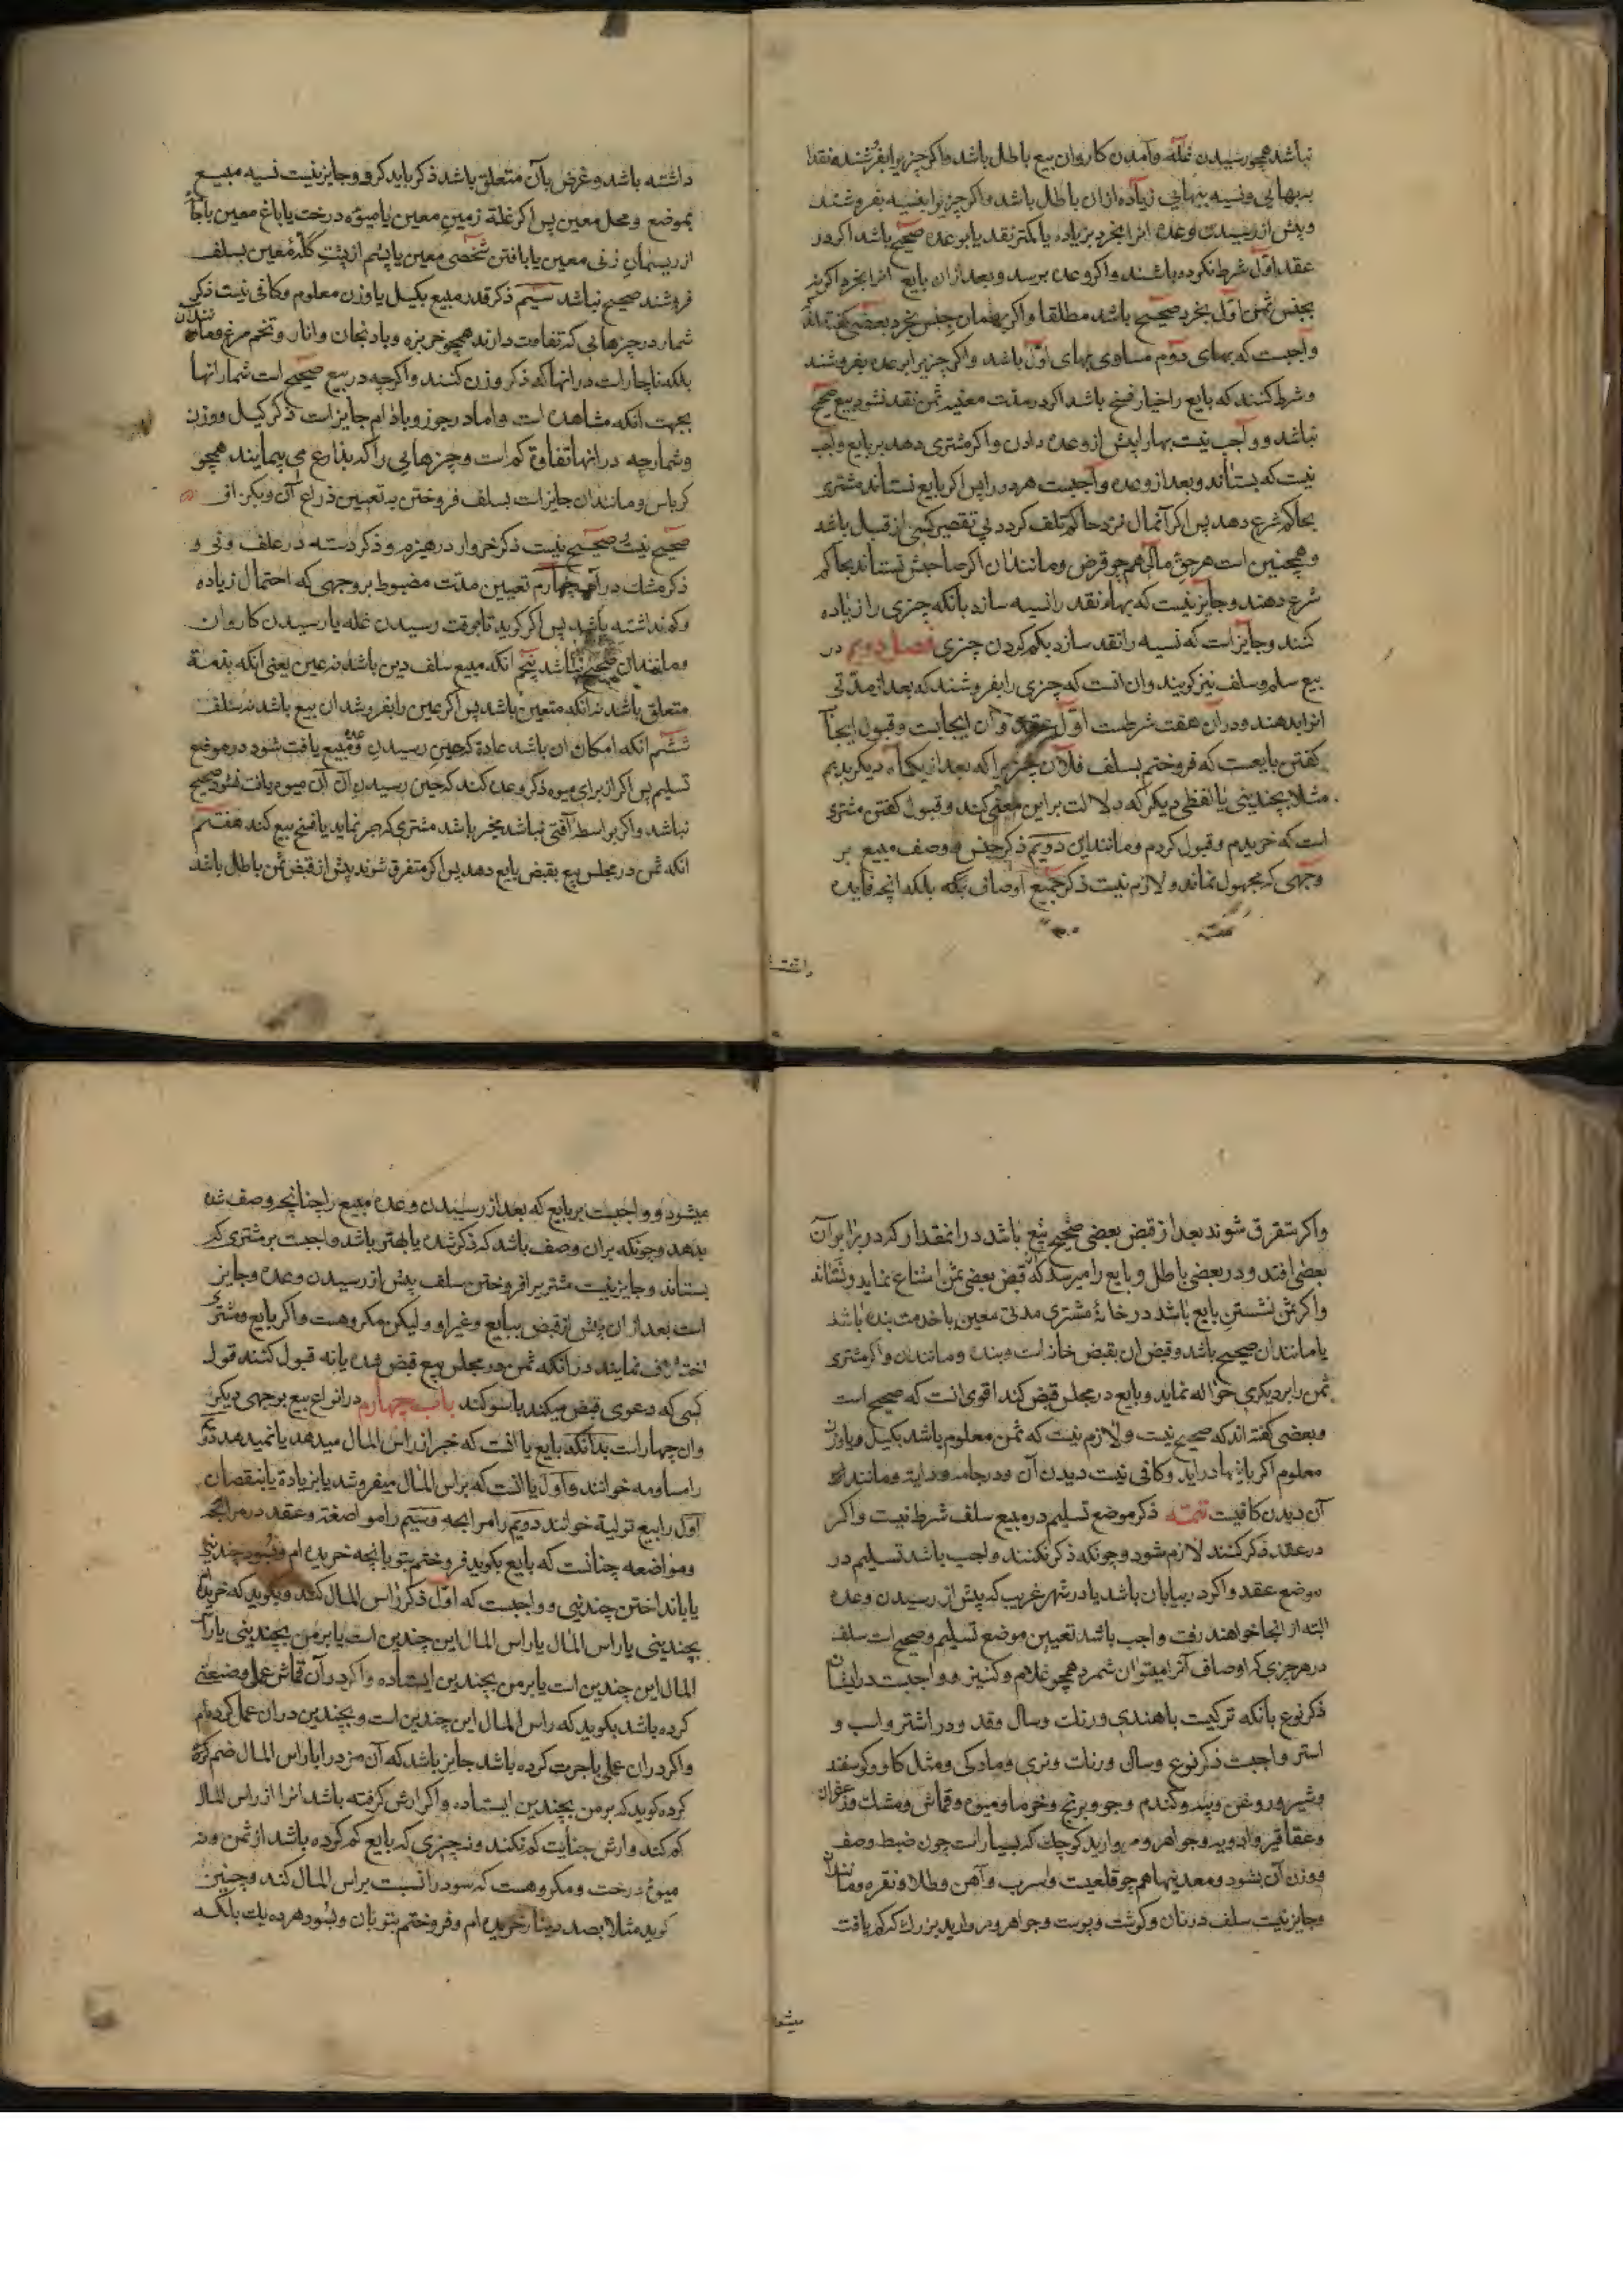 نباشد همچو رسیدن غله و آمدن کاروان بیع باطل باشد و اکر چیزیرا بفروشند نقدا
ببهایی و نسیه ببهایی زیاده ازان باطل باشد و اکر چیزیرا بنسیه بفروشند
و پیش از رسیدن وعده انرا بخرد بزیاده یا کمتر نقد یا بوعده صحیح باشد اکر در
عقد اول شرط نکرده باشند و اکر وعده برسد و بعد ازان بایع انرا بخرد اکر بغیر
جنس ثمن اول بخرد صحیح باشد مطلقا و اکر بهمان جنس بخرد بعضی کفته اند
واجبست که بهای دوم مساوی بهای اول باشد و اکر چیزیرا بوعده بفروشند
و شرط کنند که بایع را خیار فسخ باشد اکر در مدت معینه ثمن نقد نشود بیع صحیح
نباشد و واجب نیست بها را پیش از وعده دادن و اکر مشتری دهد بر بایع واجب
نیست که بستاند و بعد از وعده واجبست هر دو را پس اکر بایع نستاند مشتری
بحاکم شرع دهد پس اکر آنمال نزد حاکم تلف کردد بی تقصیر کسی از قبل باشد
و همچنین است هر حق مالی همچو قرض و مانند ان اکر صاحبش نستاند بحاکم
شرع دهند و جایز نیست که بهاء نقد را نسیه سازد بانکه چیزی را زیاده
کنند و جایز است که نسیه را نقد سازد بکم کردن چیزی فصل دویم در
بیع سلم و سلف نیز کویند و ان انست که چیزی را بفروشند که بعد از مدتی
انرا بدهند و در آن هفت شرطست اول عقد و آن ایجابست و قبول ایجاب
کفتن بایعست که فروختم بسلف فلان چیز را که بعد از یکماه دیکر بدیم
مثلا بچندینی یا لفظی دیکر که دلالت بر این معنی کند و قبول کفتن مشتری
است که خریدم و قبول کردم و مانند این دویم ذکر جنس و وصف مبیع بر
وجهی که مجهول نماند و لازم نیست ذکر جمیع اوصاف بلکه انچه فایده
داشته
داشته باشد و غرض بآن متعلق باشد ذکر باید کرد و جایز نیست نسیه مبیع
بموضع و محل معین پس اکر غلهٔ زمین معین یا میوه درخت یا باغ معین یا جامه
از ریسمان زنی معین یا بافتن شخصی معین یا پشم از پشت کله معین بسلف
فروشند صحیح نباشد سیم ذکر قدر مبیع بکیل یا وزن معلوم و کافی نیست ذکر
شمار در چیزهایی که تفاوت دارند همچو خربزه و بادنجان و انار و تخم مرغ و مانند ان
بلکه ناچار است در انها که ذکر وزن کنند و اکرچه در بیع صحیح است شمار انها
بجهت انکه مشاهده است و اما در جوز و بادام جایز است ذکر کیل و وزن
و شمار چه در انها تفاوة کم است و چیزهایی را که بذراع می پیمایند همچو
کرباس و مانند ان جایز است بسلف فروختن به تعیین ذراع آن و بکزاف
صحیح نیست و صحیح نیست ذکر خروار در هیزم و ذکر دسته در علف و نی و
ذکر مشک در آب چهارم تعیین مدت مضبوط بر وجهی که احتمال زیاده
و کم نداشته باشد پس اکر کوید تا بوقت رسیدن غله یا رسیدن کاروان
و مانند ان صحیح نباشد پنجم انکه مبیع سلف دین باشد نه عین یعنی انکه بذمهٔ
متعلق باشد نه انکه متعین باشد پس اکر عین را بفروشد ان بیع باشد نه سلف
ششم انکه امکان ان باشد عادة که حین رسیدن وعده مبیع یافت شود در موضع
تسلیم پس اکر از برای میوه ذکر وعده کند که حین رسیدن ان آن میوه یافت نشود صحیح
نباشد و اکر بواسطه آفتی نباشد مخیر باشد مشتری که صبر نماید یا فسخ بیع کند هفتم
انکه ثمن در مجلس بیع بقبض بایع دهد پس اکر متفرق شوند پیش از قبض ثمن باطل باشد
و اکر متفرق شوند بعد از قبض بعضی صحیح بیع باشد در انمقدار که در برابر آن
بعضی افتد و در بعضی باطل و بایع را میرسد که از قبض بعضی ثمن امتناع نماید و نستاند
و اکر ثمن نشستن بایع باشد در خانهٔ مشتری مدتی معین یا خدمت بنده باشد
یا مانند ان صحیح باشد و قبض ان بقبض خانه است و بنده و مانند ان و اکر مشتری
ثمن را بر دیکری حواله نماید و بایع در مجلس قبض کند اقوی انست که صحیح است
و بعضی کفته اند که صحیح نیست و لازم نیست که ثمن معلوم باشد بکیل و یا وزن
معلوم اکر باینها در اید و کافی نیست دیدن آن و در جامه و دابه و مانند ان
آن دیدن کافیست تتمه ذکر موضع تسلیم در مبیع سلف شرط نیست و اکر
در عقد ذکر کنند لازم شود و چونکه ذکر نکنند واجب باشد تسلیم در
موضع عقد و اکر در بیابان باشد یا در شهر غریب که پیش از رسیدن وعده
البته از انجا خواهند رفت واجب باشد تعیین موضع تسلیم و صحیح است سلف
در هر چیزی که اوصاف آنرا میتوان شمرد همچو غلام و کنیز و واجبست در ایشان
ذکر نوع بانکه ترکیست یا هندی و رنک و سال و قد و در اشتر و اسب و
استر واجبست ذکر نوع و سال و رنک و نری و مادکی و مثل کاو و کوسفند
و شیر و روغن و پیه و کندم و جو و برنج و خرما و میوه و قماش و مشک و زعفران
و عقاقیر و ادویه و جواهر و مروارید کوچک که بسیار است چون ضبط وصف
و وزن آن بشود و معدنیها همچو قلعیست و اسرب و آهن و طلا و نقره و مانند ان
و جایز نیست سلف در نان و کوشت و پوست و جواهر و مروارید بزرک که کم یافت
میشود
میشود و واجبست بر بایع که بعد از رسیدن وعده مبیع را چنانچه وصف شده
بدهد و چونکه بران وصف باشد که ذکر شده یا بهتر باشد واجبست بر مشتری که
بستاند و جایز نیست مشتریرا فروختن سلف پیش از رسیدن وعده و جایز
است بعد ازان پیش از قبض ببایع و غیر او و لیکن مکروهست و اکر بایع و مشتری
اختلاف نمایند در انکه ثمن در مجلس بیع قبض شده یا نه قبول کنند قول
کسی که دعوی قبض میکند با سوکند باب چهارم در انواع بیع بر وجهی دیکر
و ان چهار است بدانکه بایع یا انست که خبر از راس المال میدهد یا نمیدهد دیکر
را مساومه خوانند و اول یا انست که براس المال میفروشد یا بزیادة یا بنقصان
اول را بیع تولیه خوانند دویم را مرابحه و سیم را مواضعة و عقد در مرابحه
و مواضعه چنانست که بایع بکوید فروختم بتو بانچه خریده ام و بسود چندینی
یا بانداختن چندینی و واجبست که اول ذکر راس المال کند و بکوید که خریدم
بچندینی یا راس المال یا راس المال این چندین است یا بر من بچندینی یا راس
المال این چندین است یا بر من بچندین ایستاده و اکر در آن قماش عملی و صنعتی
کرده باشد بکوید که راس المال این چندین است و بچندین دران عمل کرده ام
و اکر دران عملی باجرت کرده باشد جایز باشد که آن مزد را با راس المال ضم کرده
کرده کوید که بر من بچندین ایستاده و اکر ارش کرفته باشد انرا از راس المال
کم کند و ارش جنایت کم نکند و نه چیزی که بایع کم کرده باشد از ثمن و نه
میوهٔ درخت و مکروهست که سود را نسبت براس المال کند و چنین
کوید مثلا بصد دینار خریده ام و فروختم بتو بان و بسود هر ده یک بلکه